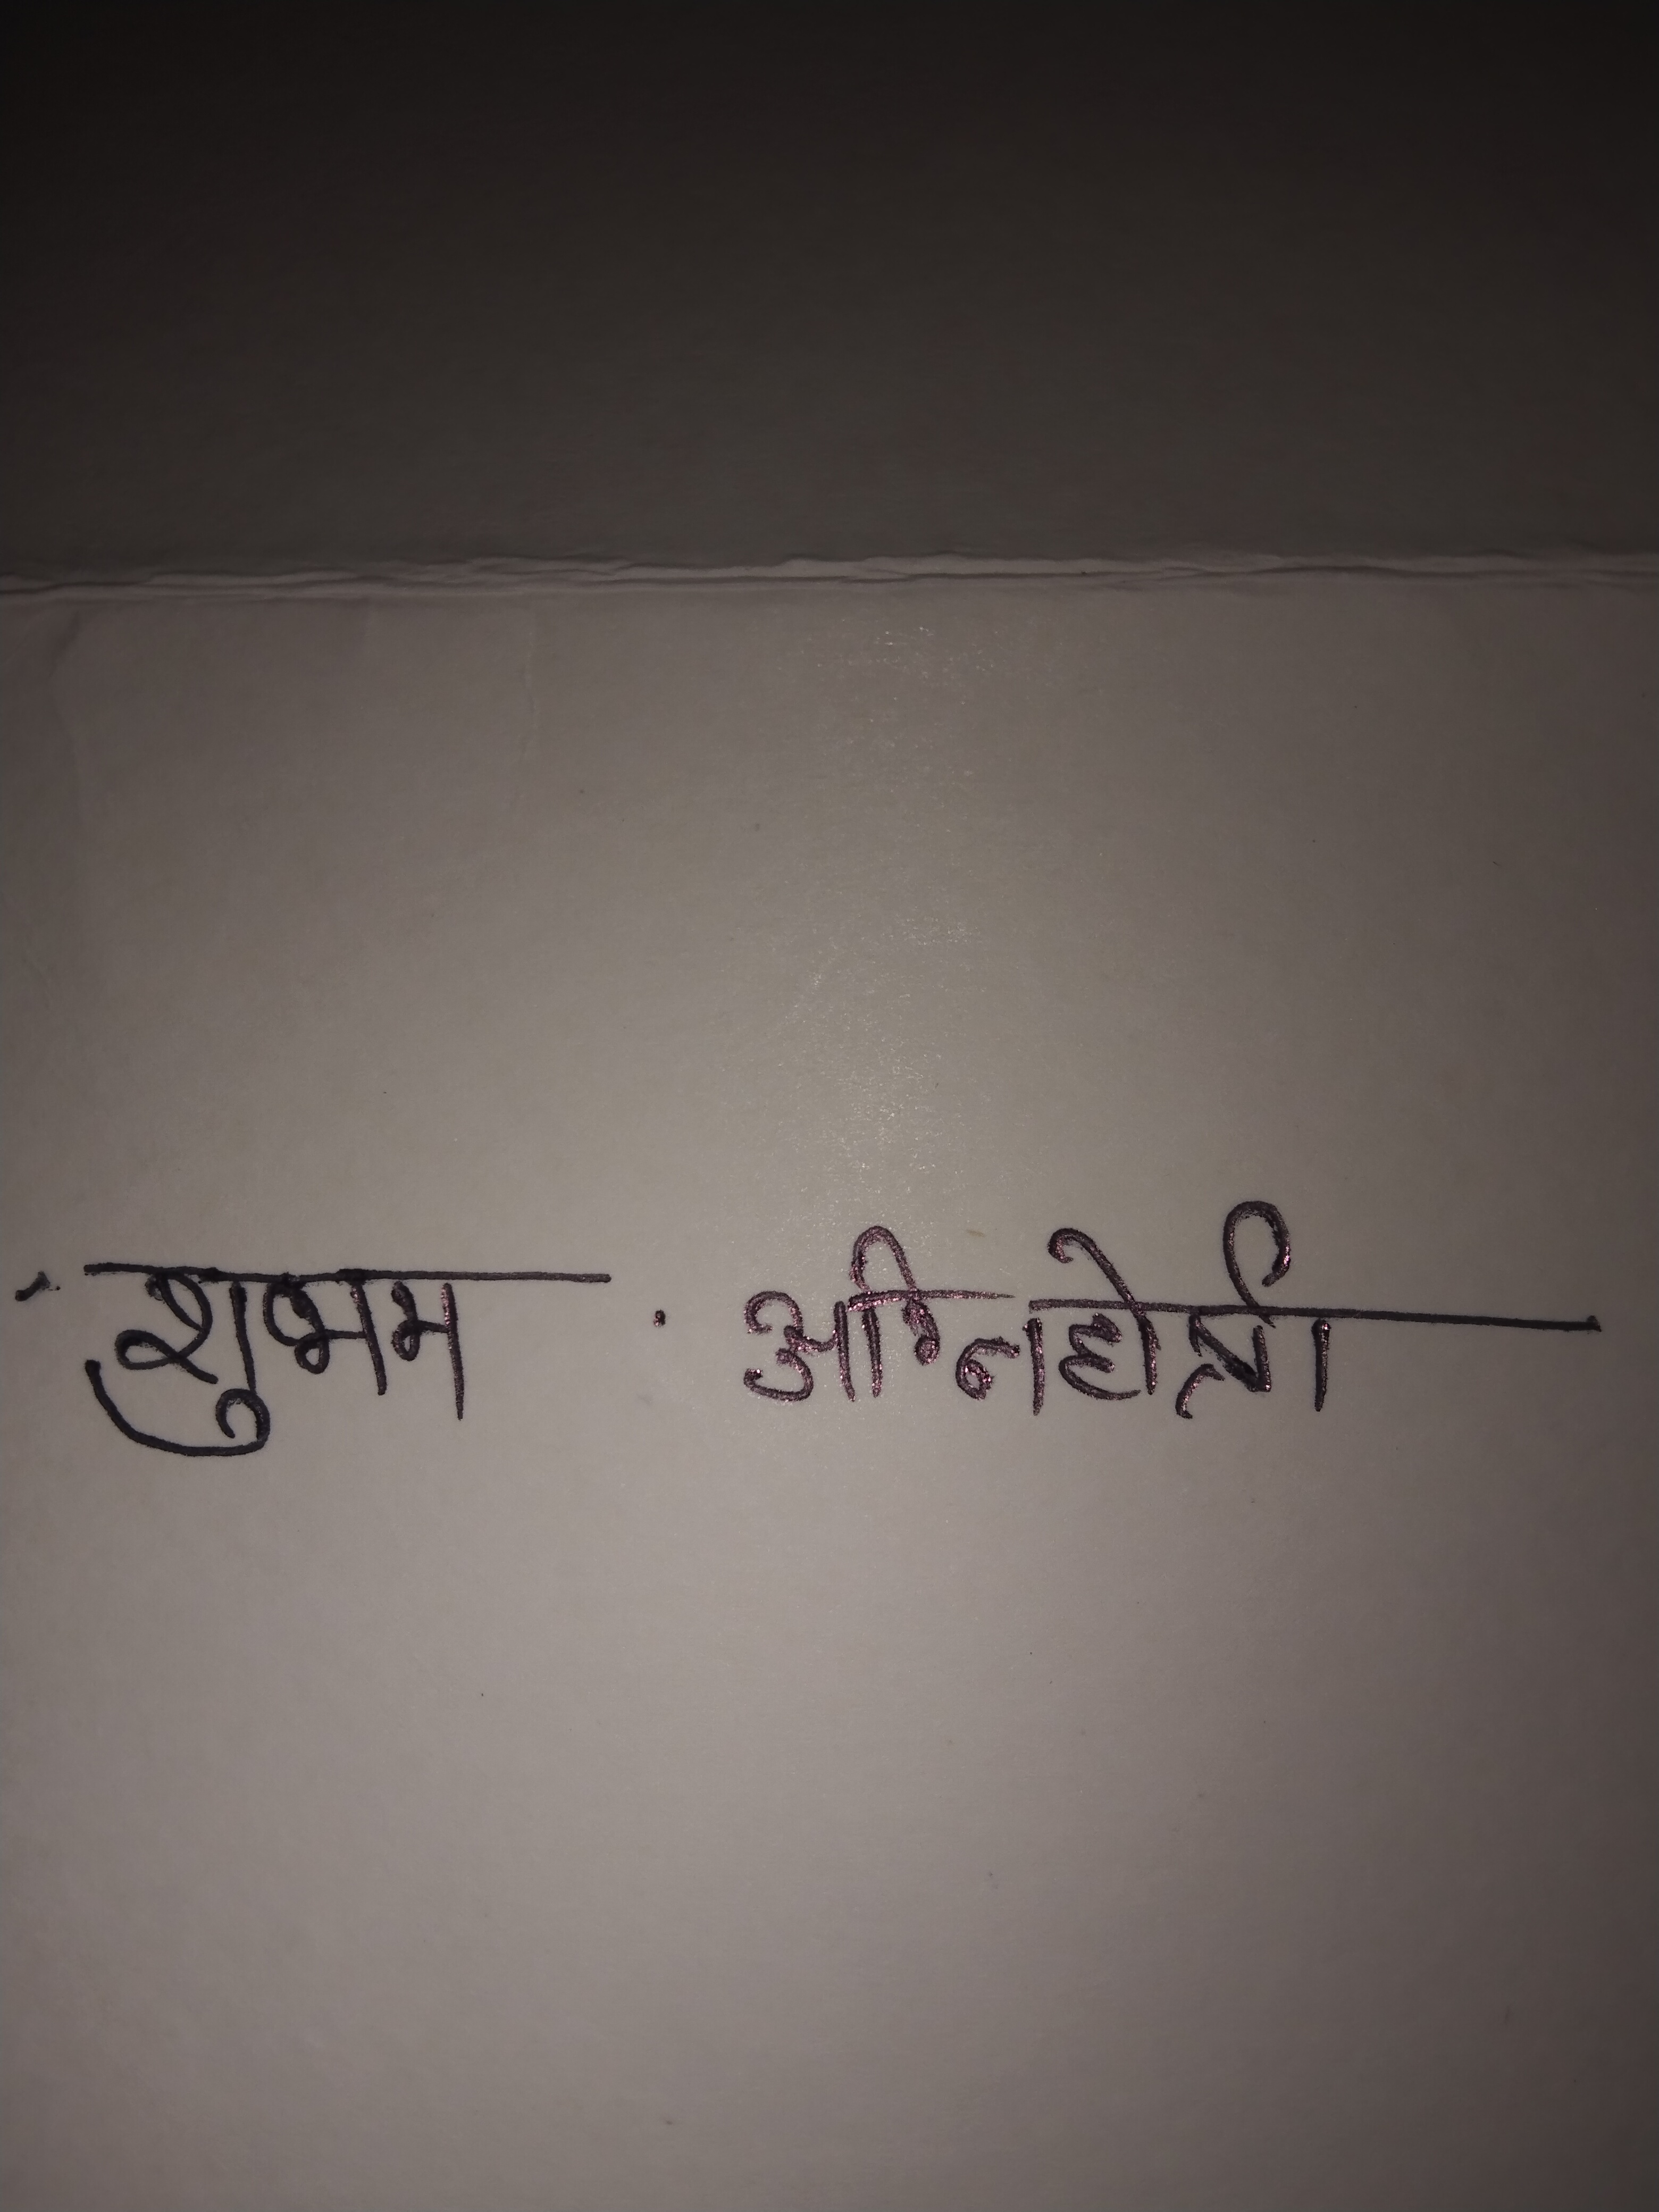 शुभम अग्निहोत्री